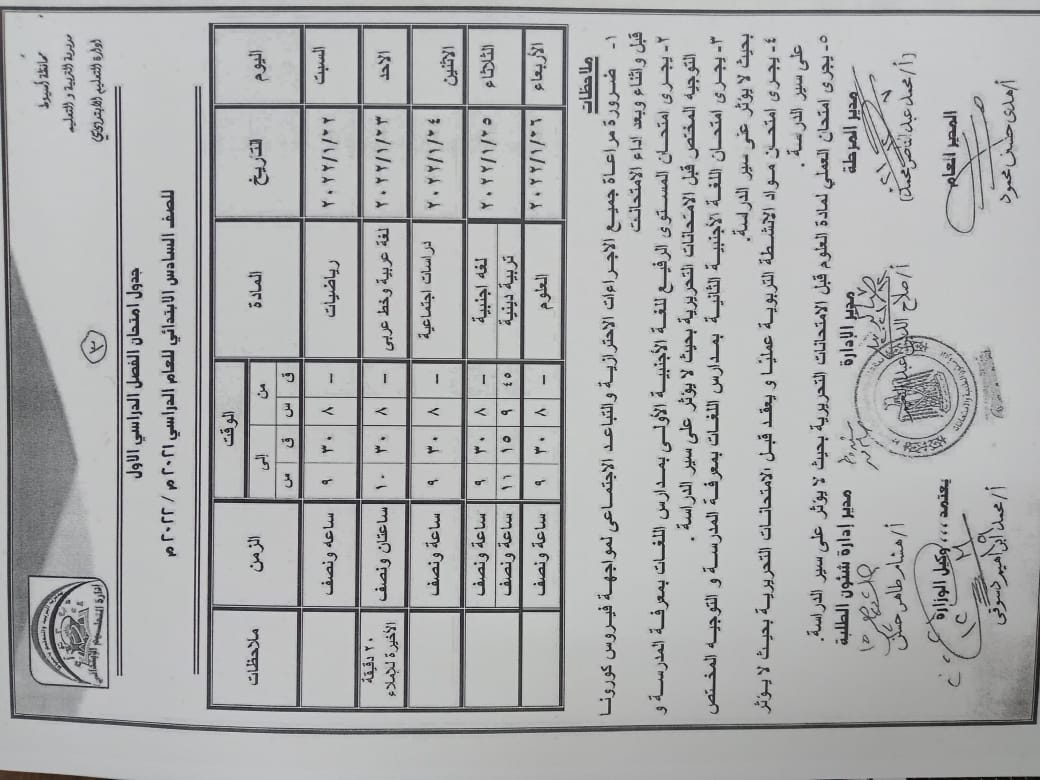 محافظة أسيوط
مديرية التربية والتعليم
إدارة التعليم الابتدائي
٣
جدول امتحان الفصل الدراسي الاول
للصف السادس الابتدائي للعام الدراسي ٢٠٢١ م / ٢٠٢٢ م
اليوم التاريخ المادة الوقت الزمن ملاحظات
من إلى
ق س ق س
السبت ٢٠٢٢/١/٢٢ رياضيات – ٨ ٣٠ ٩ ساعه ونصف
الاحد ٢٠٢٢/١/٢٣ لغة عربية وخط عربى – ٨ ٣٠ ١٠ ساعتان ونصف ٢٠ دقيقة الأخيرة للإملاء
الاثنين ٢٠٢٢/١/٢٤ دراسات اجتماعية – ٨ ٣٠ ٩ ساعة ونصف
الثلاثاء ٢٠٢٢/١/٢٥ لغه اجنبية – ٨ ٣٠ ٩ ساعة ونصف
تربية دينية ٤٥ ٩ ١٥ ١١ ساعة ونصف
الأربعاء ٢٠٢٢/١/٢٦ العلوم – ٨ ٣٠ ٩ ساعة ونصف
ملاحظات
١- ضرورة مراعاة جميع الاجراءات الاحترازية والتباعد الاجتماعى لمواجهة فيروس كورونا
قبل واثناء وبعد اداء الامتحانت
٢- يجرى امتحان المستوى الرفيع للغة الأجنبية الأولى بمدارس اللغات بمعرفة المدرسة و
التوجيه المختص قبل الامتحانات التحريرية بحيث لا يؤثر على سير الدراسة .
٣- يجرى امتحان اللغة الأجنبية الثانية بمدارس اللغات بمعرفة المدرسة و التوجيه المختص
بحيث لا يؤثر على سير الدراسة.
٤- يجرى امتحان مواد الانشطة التربوية عمليا و يعقد قبل الامتحانات التحريرية بحيث لا يؤثر
على سير الدراسة .
٥- يجرى امتحان العملي لمادة العلوم قبل الامتحانات التحريرية بحيث لا يؤثر على سير الدراسة.
مدير المرحلة مدير الادارة مدير إدارة شئون الطلبة
أ/ محمد عبد الناصر محمد أ/ صلاح الدين أ/ هشام طاهر حسن
المدير العام يعتمد ,,,, وكيل الوزارة
أ/ هدى خلف محمود أ/ محمد ابراهيم دسوقى
إدارة التعليم الابتدائي